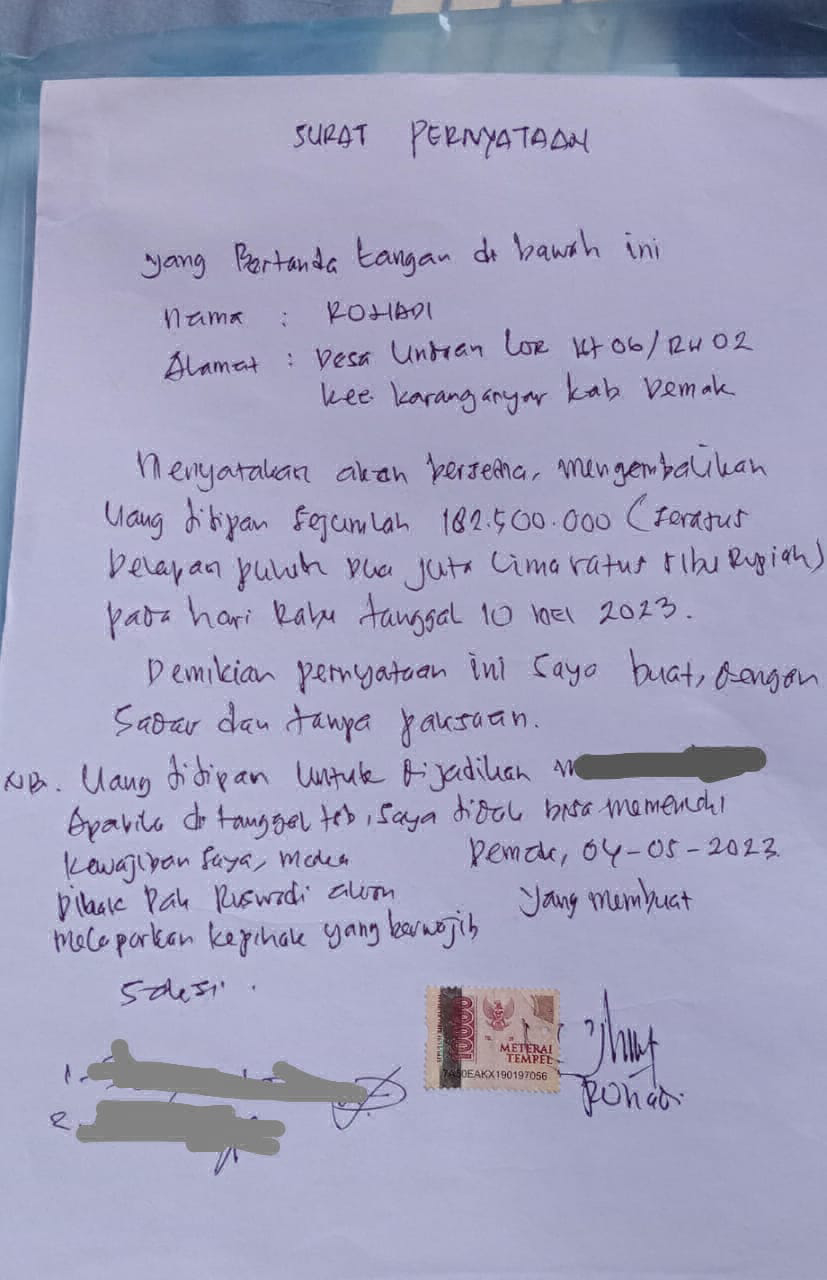 SURAT PERNYATAAN
yang Bertanda tangan di bawah ini
Nama : ROHADI
Alamat : Desa Undaan Lor Rt 06/RW 02
kec. Karanganyar kab Demak
Menyatakan akan bersedia, mengembalikan
Uang titipan Sejumlah 182.500.000 (Seratus
Delapan puluh Dua juta Lima ratus ribu Rupiah)
pada hari Rabu tanggal 10 MEI 2023.
Demikian pernyataan ini Saya buat, dengan
Sadar dan tanpa paksaan.
NB. Uang titipan Untuk dijadikan
Apabila di tanggal tsb, saya tidak bisa memenuhi
Kewajiban Saya, maka
Demak, 04-05-2023
Pihak Pak Ruswadi akan
Yang membuat
melaporkan kepihak yang berwajib
Saksi
10000
METERAI
TEMPEL
EAKX190197056
1.
2.
Rohadi